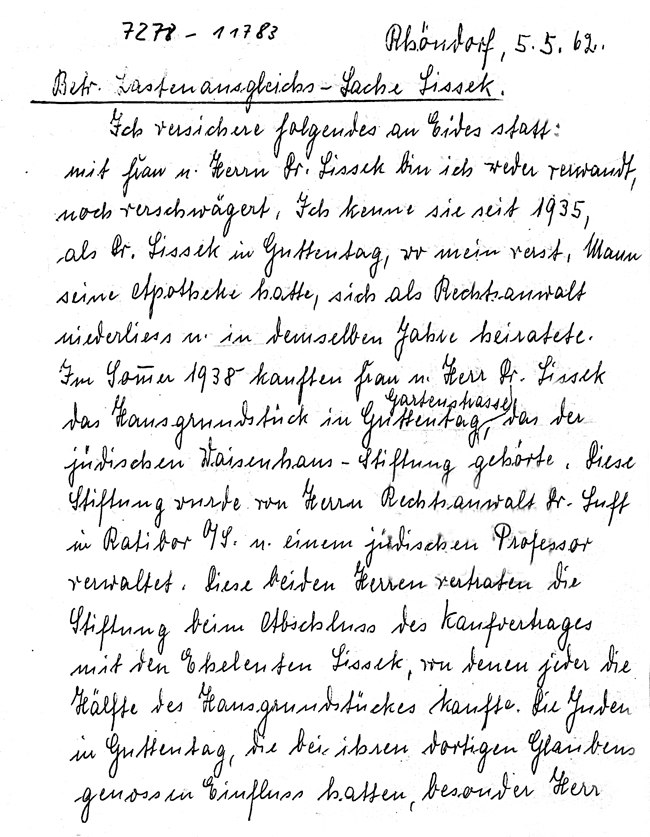 7278 - 11783
Rhöndorf, 5.5.62.
Betr. Lastenausgleichs-Sache Lissek.
Ich versichere folgendes an Eides statt:
mit Frau u. Herrn Dr. Lissek bin ich weder verwandt,
noch verschwägert. Ich kenne sie seit 1935,
als Dr. Lissek in Guttentag, wo mein verst. Mann
seine Apotheke hatte, sich als Rechtsanwalt
niederliess u. in demselben Jahre heiratete.
Im Som̅er 1938 kauften Frau u. Herr Dr. Lissek
Gartenstrasse
das Hausgrundstück in Guttentag, das der
jüdischen Waisenhaus-Stiftung gehörte. Diese
Stiftung wurde von Herrn Rechtsanwalt Dr. Luft
in Ratibor O/S. u. einem jüdischen Professor
verwaltet. Diese beiden Herren vertraten die
Stiftung beim Abschluss des Kaufvertrages
mit den Eheleuten Lissek, von denen jeder die
Hälfte des Hausgrundstückes kaufte. Die Juden
in Guttentag, die bei ihren dortigen Glaubens
genossen Einfluss hatten, besonder Herr